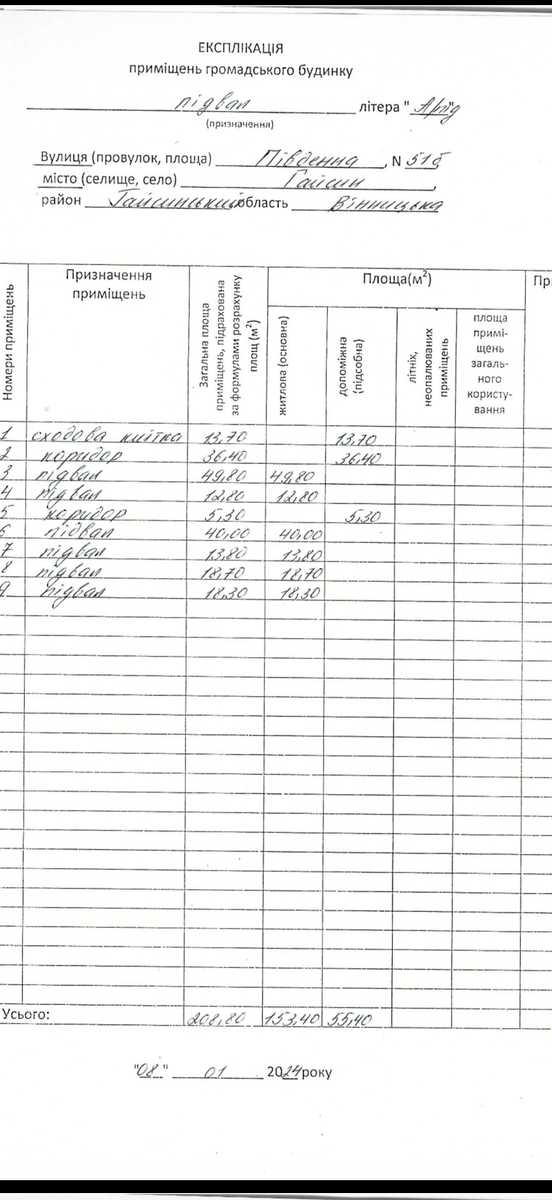 ЕКСПЛІКАЦІЯ
приміщень громадського будинку
підвал літера "
(призначення)
Вулиця (провулок, площа) Південна, N 51б
місто (селище, село) Гайсин,
район Гайсинський область Вінницька
Номери приміщень
Призначення приміщень
Загальна площа приміщень, підрахована за формулами розрахунку площ (м²)
Площа(м²)
житлова (основна)
допоміжна (підсобна)
літніх, неопалюваних приміщень
площа примі-щень загаль-ного користу-вання
Пр
1 сходова клітка 13,70 13,70
2 коридор 36,40 36,40
3 підвал 49,80 49,80
4 підвал 12,80 12,80
5 коридор 5,30 5,30
6 підвал 40,00 40,00
7 підвал 13,80 13,80
8 підвал 18,70 18,70
9 підвал 18,30 18,30
Усього: 208,80 153,40 55,40
"08" 01 2024 року